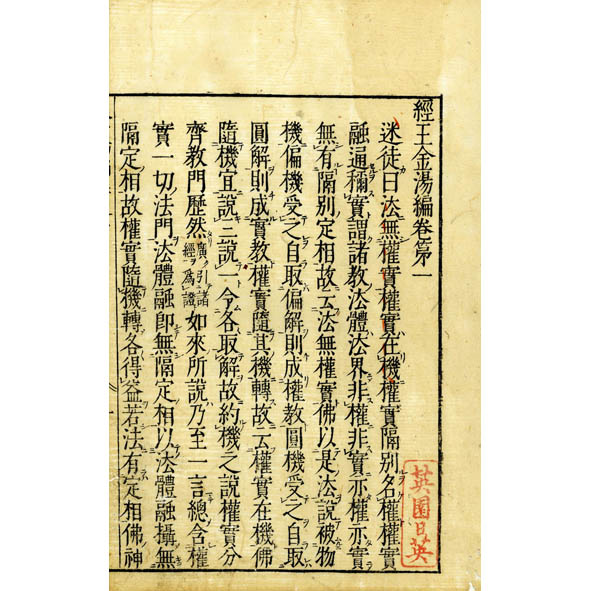 經王金湯編卷第一
迷徒曰法無權實權實在機權實隔別名權權實
融通稱實謂諸教法體法界非權非實亦權亦實
無有隔別定相故云法無權實佛以是法說被物
機偏機受之自取偏解則成權教圓機受之自取
圓解則成實教權實隨其機轉故云權實在機佛
隨機宜說三說一令各取解故約機之說權實分
齊教門歷然廣引諸經爲證如來所說乃至一言總含權
實一切法門法體融即無隔定相以法體融攝無
隔定相故權實隨機轉各得益若法有定相佛神
英園日英